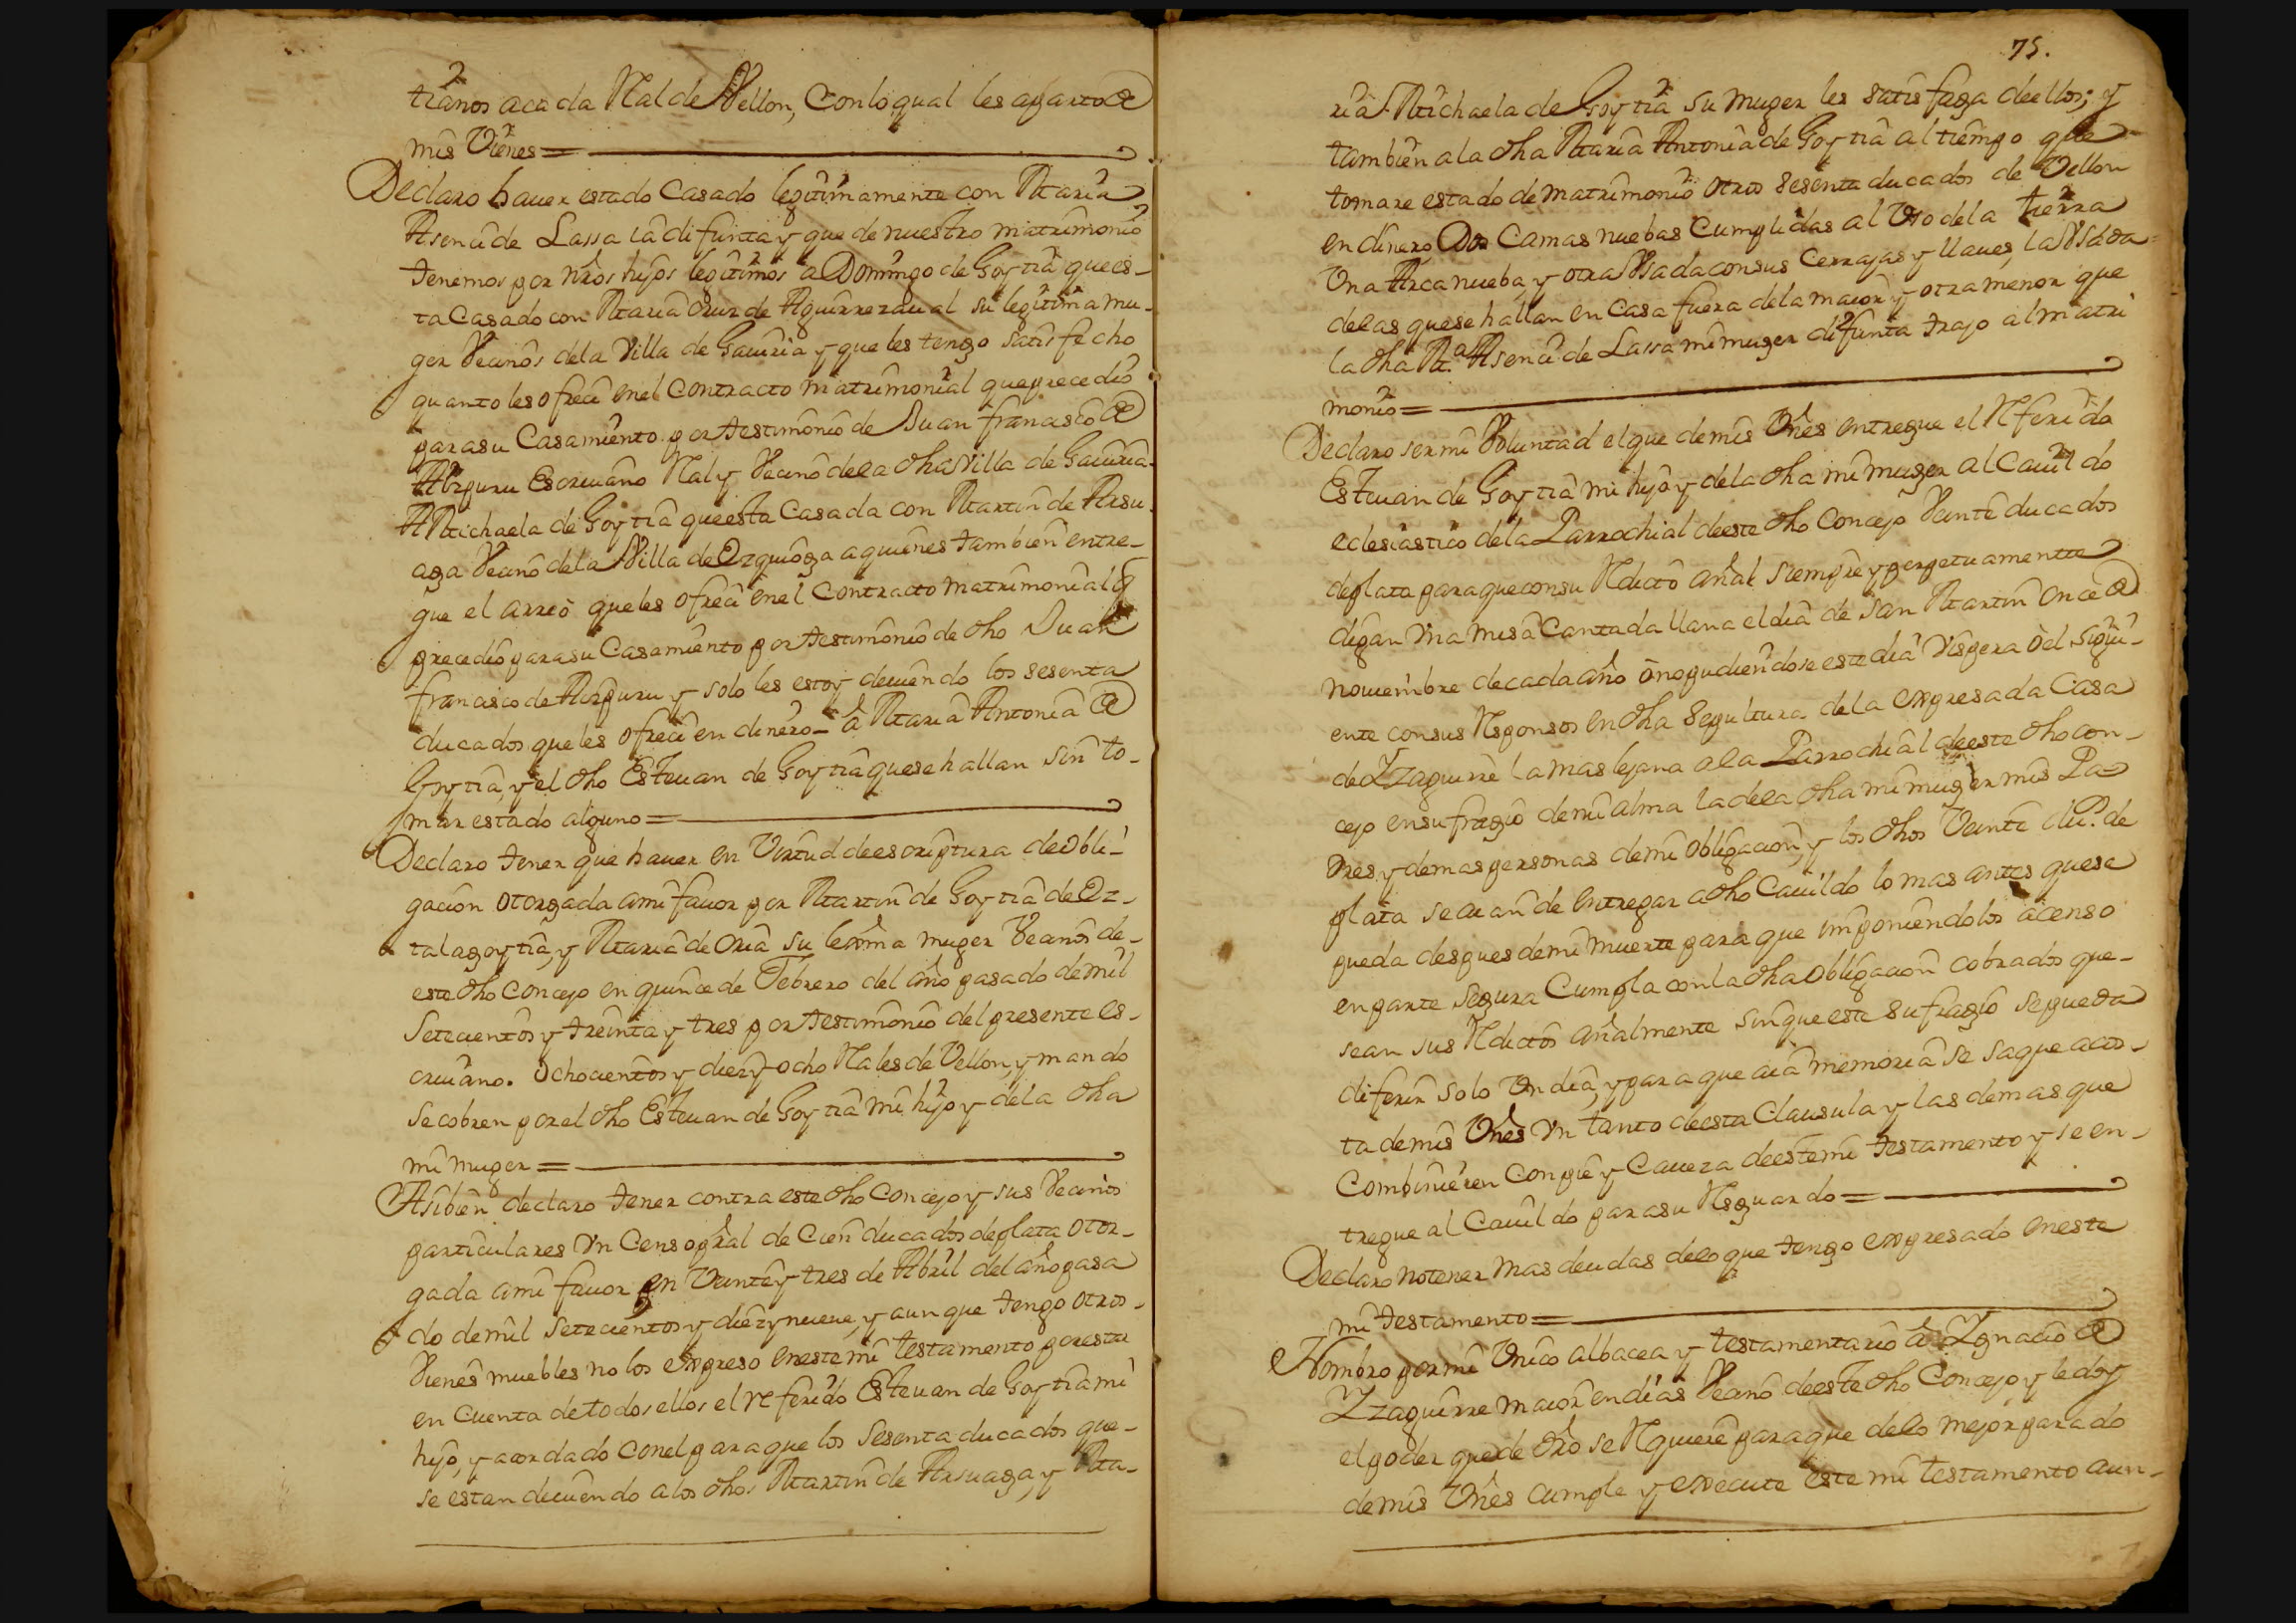 tianos acada Rl de Vellon, Con lo qual les aparto de
mis Vienes =
Declaro hauer estado Casado legitimamente con Maria
Asenci de Lassa ia difunta y que de nuestro matrimonio
tenemos por nros hijos legitimos a Domingo de Goytia que es-
ta Casado con Maria Cruz de Aguirrezaual su legitima mu-
ger Vecinos de la Villa de Gauiria y que les tengo satisfecho
quanto les ofreci en el Contracto matrimonial que precedio
para su Casamiento por testimonio de Juan francisco de
Aizpuru Escriuano Rl y Vecino de la dha Villa de Gauiria
A Michaela de Goytia que esta Casada con Martin de Arsu-
aga Vecino de la Villa de Ezquioga a quienes tambien entre-
gue el arreo que les ofreci en el Contracto matrimonial q
precedio para su Casamiento por testimonio de dho Juan
francisco de Aizpuru y solo les estoy deuiendo los sesenta
ducados que les ofreci en dinero - â Maria Antonia de
Goytia, y el dho Esteuan de Goytia que se hallan sin to-
mar estado alguno =
Declaro tener que hauer en Virtud de escriptura de Obli-
gacion otorgada a mi fauor por Martin de Goytia de Oz-
talagoytia, y Maria de Oria su lexma muger Vecinos de
este dho Concejo en quince de Febrero del año pasado de mil
Setecientos y treinta y tres por testimonio del presente es-
criuano. Ochocientos y diez y ocho Rales de Vellon, y mando
se cobren por el dho Esteuan de Goytia mi hijo y de la dha
mi muger =
Asibien declaro tener contra este dho Concejo y sus Vecinos
particulares Vn Censo pral de Cien ducados de plata otor-
gada a mi fauor en Veinte y tres de Abril del año pasa
do de mil setecientos y diez y nueue, y aunque tengo otros
Vienes muebles no los expreso en este mi testamento por estar
en Cuenta de todos ellos el referido Esteuan de Goytia mi
hijo, y acordado con el para que los sesenta ducados que
se estan deuiendo a los dhos Martin de Arsuaga, y Ma-
75.
ria Michaela de Goytia su muger les satisfaga de ellos; y
tambien a la dha Maria Antonia de Goytia al tiempo que
tomare estado de matrimonio otros sesenta ducados de Vellon
en dinero Dos Camas nuebas Cumplidas al Vso de la tierra
Vna Arca nueba, y otra Vsada con sus Cerrajas y llaues, la Vsada
de las que se hallan en Casa fuera de la maior y otra menor que
la dha Ma Asenci de Lassa mi muger difunta trajo al matri
monio =
Declaro ser mi Voluntad el que de mis Vnes entregue el Referido
Esteuan de Goytia mi hijo y de la dha mi muger al Cauildo
eclesiastico de la Parrochial de este dho Concejo Veinte ducados
de plata para que con su Redicto añal siempre y perpetuamente
digan Vna misa Cantada llana el dia de San Martin Once de
nouiembre de cada año ô no pudiendose este dia Vispera ô el sigui-
ente con sus Responsos en dha sepultura de la expresada Casa
de Yzaguirre la mas lejana a la Parrochial de este dho con-
cejo en sufragio de mi alma la de la dha mi muger mis Pa-
dres, y demas personas de mi obligacion, y los dhos Veinte dus. de
plata se aian de entregar a dho Cauildo lo mas antes que se
pueda despues de mi muerte para que imponiendolos a censo
en parte segura Cumpla con la dha obligacion cobrados que
sean sus Redictos añalmente sin que este sufragio se pueda
diferir solo Vn dia, y para que aia memoria se saque acos-
ta de mis Vnes Vn tanto de esta Clausula y las demas que
Combinieren Con pie y Caueza de este mi testamento y se en-
tregue al Cauildo para su Resguardo =
Declaro no tener mas deudas de lo que tengo expresado en este
mi testamento =
Nombro por mi Vnico albacea y testamentario â Ygnacio de
Yzaguirre maior en dias Vecino de este dho Concejo y le doy
el poder que de dro se Requiere para que de lo mejor parado
de mis Vnes cumple y execute este mi testamento aun-